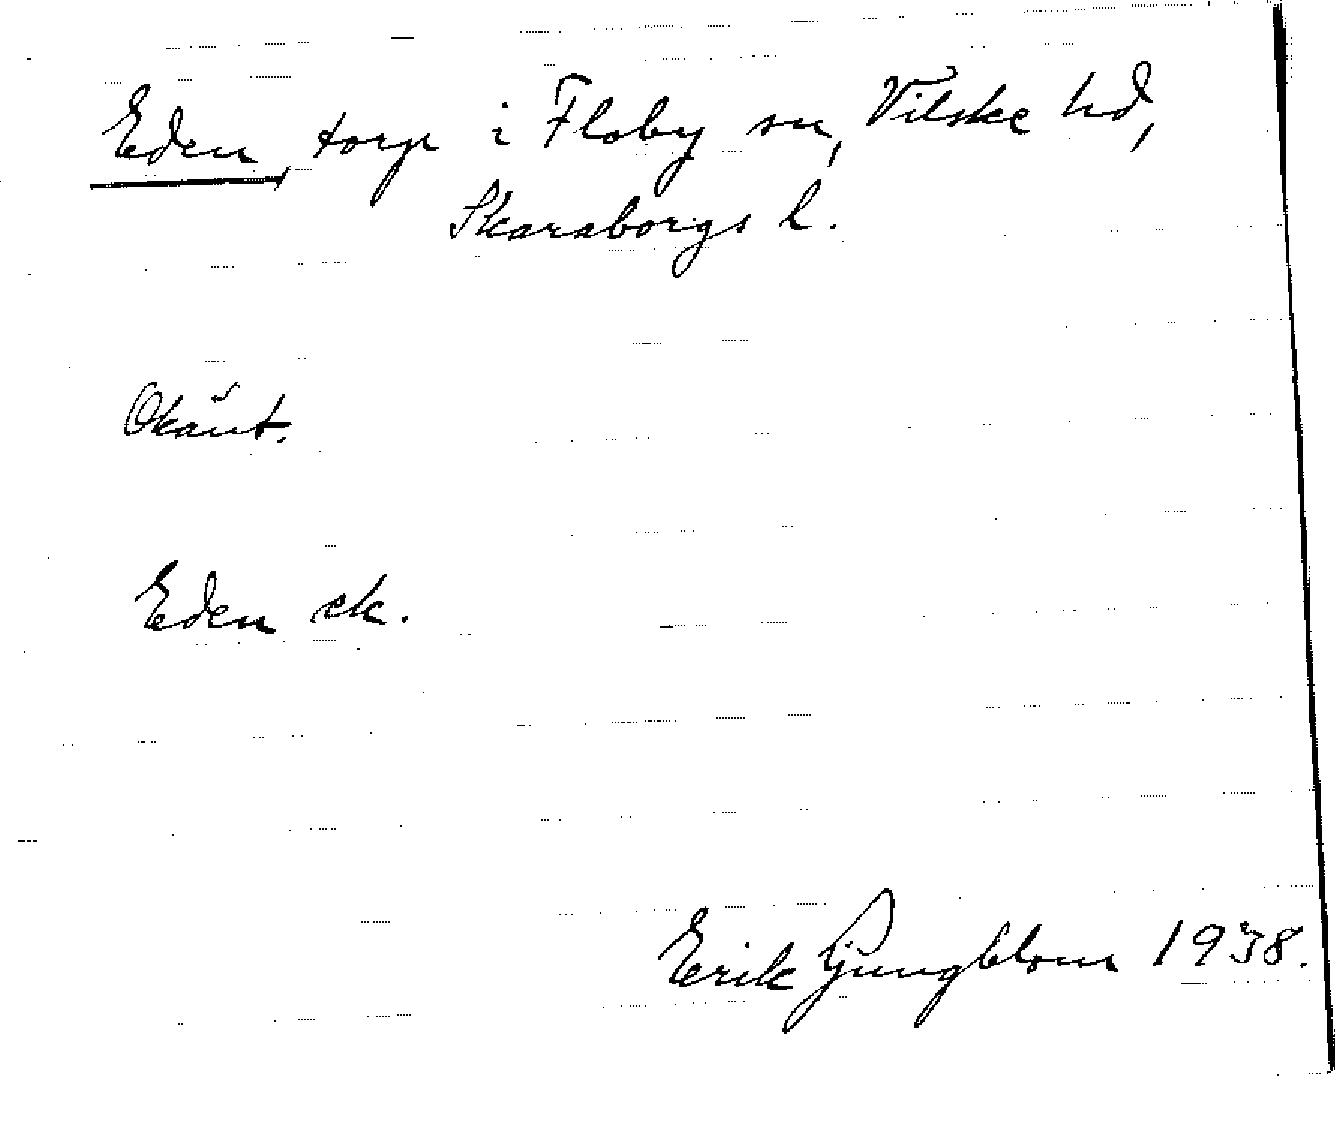 Eden, torp i Floby sn, Vilske hd,
Skaraborgs l.
Okänt.
Eden ek.
Erik Ljungblom 1938.